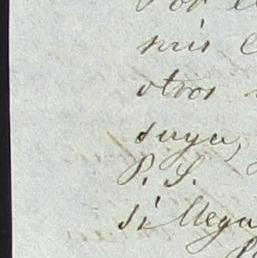 Por el
mis
otros
suya,
P. S.
Si llega